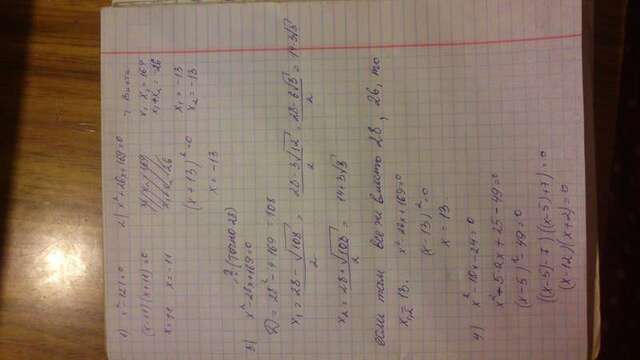 1) x² - 121 = 0
(x-11)(x+11) = 0
x = 11 x = -11
2) x² + 26x + 169 = 0
(x + 13)² = 0
x = -13
x₁ · x₂ = 169
x₁ + x₂ = -26
x₁ = -13
x₂ = -13
3) x² - 28x + 169 = 0
? (точно 28)
D = 28² - 4·169 = 108
x₁ = 28 - √108 / 2 = 28 - 3√12 / 2 = 28 - 6√3 / 2 = 14 - 3√3
x₂ = 28 + √108 / 2 = 14 + 3√3
если там все же вместо 28, 26, то
x₁,₂ = 13. x² - 26x + 169 = 0
(x - 13)² = 0
x = 13
4) x² - 10x - 24 = 0
x² - 5·2x + 25 - 49 = 0
(x - 5)² - 49 = 0
((x-5)-7)((x-5)+7) = 0
(x-12)(x+2) = 0